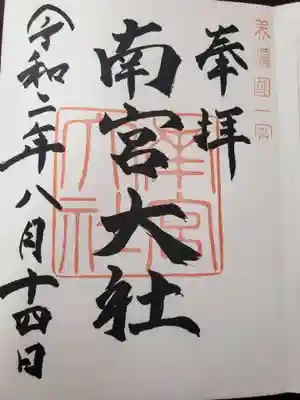 美濃國一宮
奉拝
南宮大社
令和二年八月十四日